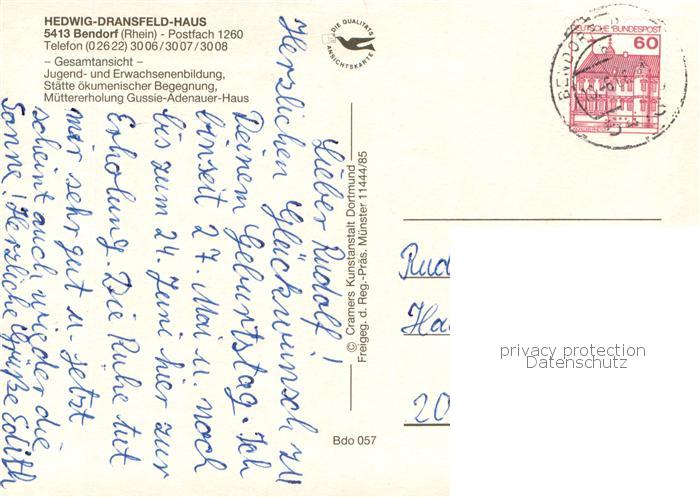 HEDWIG-DRANSFELD-HAUS
5413 Bendorf (Rhein) - Postfach 1260
Telefon (0 26 22) 30 06 / 30 07 / 30 08
– Gesamtansicht –
Jugend- und Erwachsenenbildung,
Stätte ökumenischer Begegnung,
Müttererholung Gussie-Adenauer-Haus
DIE QUALITÄTS
ANSICHTSKARTE
Lieber Rudolf!
Herzlichen Glückwunsch zu
Deinem Geburtstag. Ich
bin seit 27. Mai u. noch
bis zum 24. Juni hier zur
Erholung. Die Ruhe tut
mir sehr gut u. jetzt
scheint auch wieder die
Sonne! Herzliche Grüße Edith
© Cramers Kunstanstalt Dortmund
Freigeg. d. Reg.-Präs. Münster 11444/85
Bdo 057
DEUTSCHE BUNDESPOST
60
BENDORF
Rud
Ha
20
privacy protection
Datenschutz